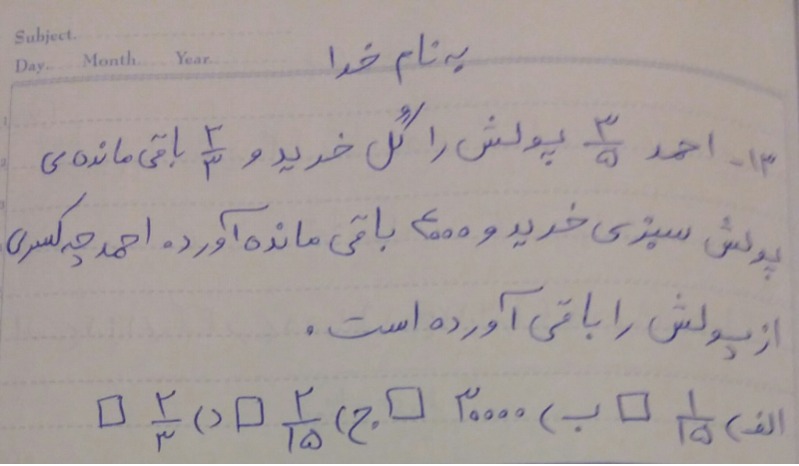 Subject.
Day. Month. Year.
به نام خدا
۱۳- احمد ۳/۵ پولش را گُل خرید و ۲/۳ باقی مانده‌ی
پولش سبزی خرید و ۴۰۰۰ باقی مانده آورده احمد چه کسری
از پولش را باقی آورده است.
الف) ۱/۱۵ □ ب) ۳۰۰۰۰ □ ج) ۲/۱۵ □ د) ۲/۳ □